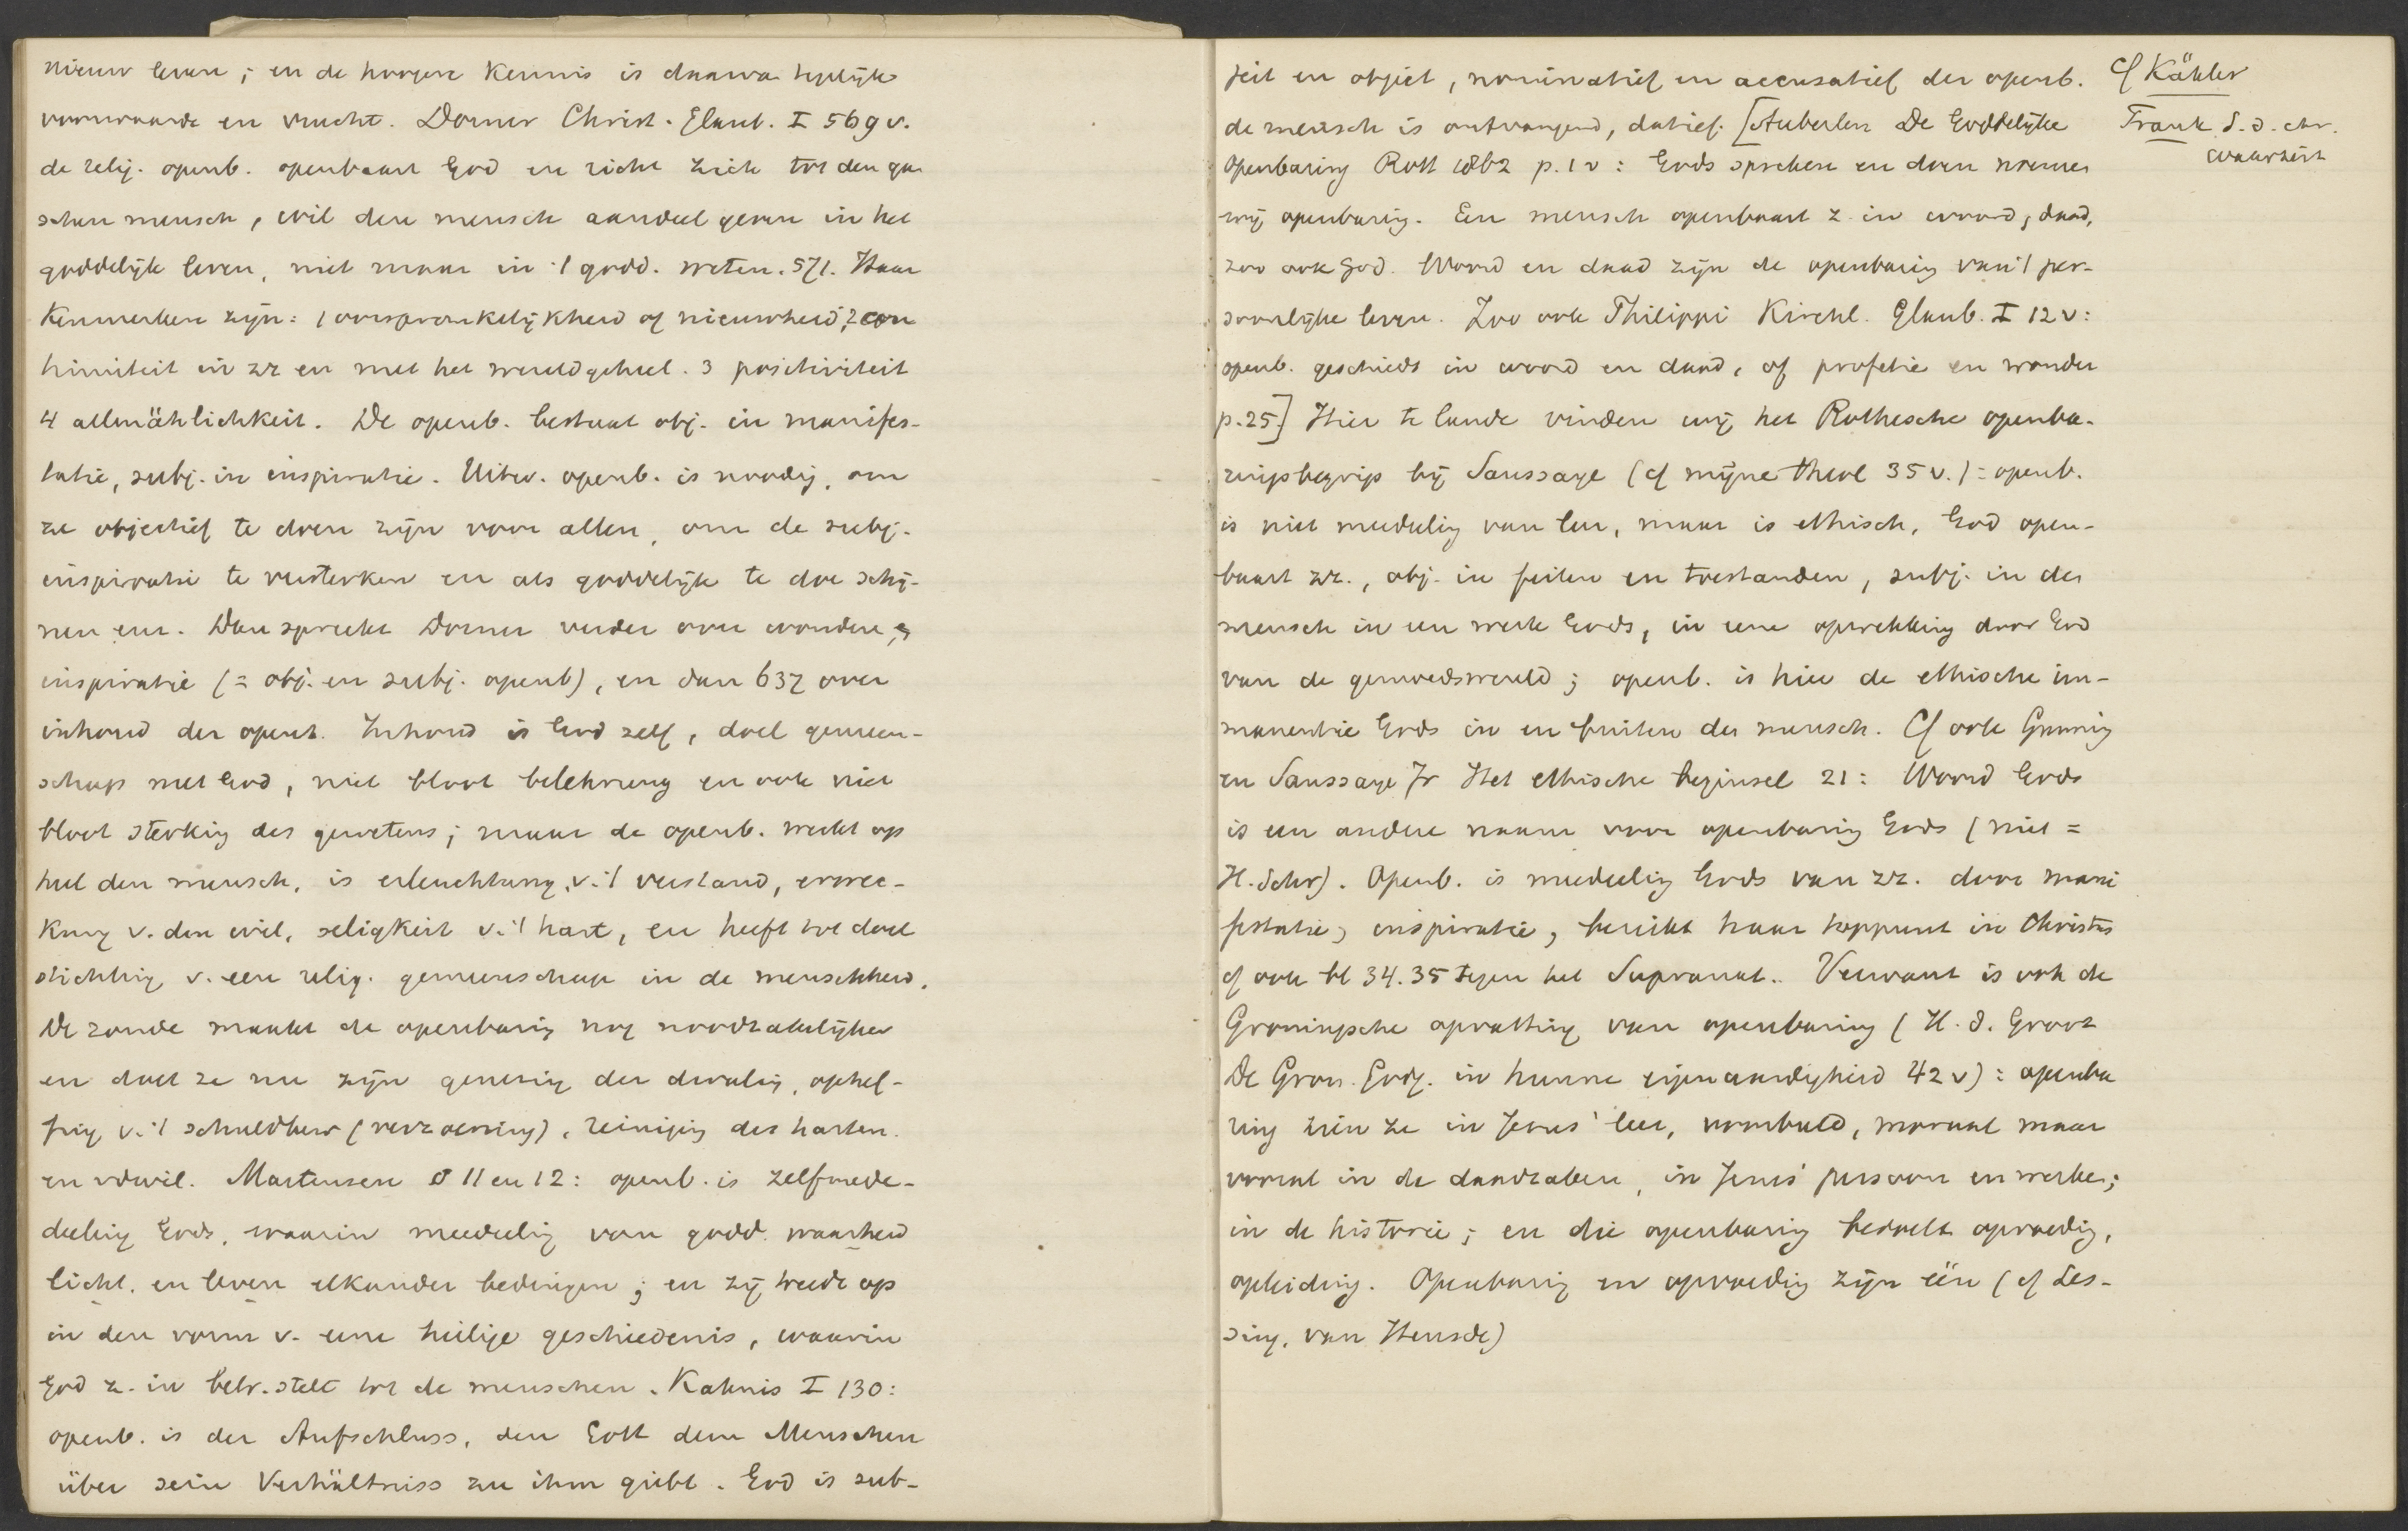 nieuw leven; en de hoogere kennis is daarva tegelijk
voorwaarde en vrucht. Dorner Christ. Glaub. I 569 v.
de relig. openb. openbaart God en richt zich tot den gan
schen mensch, wil den mensch aandeel geven in het
goddelijk leven, niet maar in 't godd. weten. 571. Haar
Kenmerken zijn: 1 oorspronkelijkheid of nieuwheid, 2 con
tinuiteit in zr en met het wereldgeheel. 3 positiviteit
4 allmählichkeit. De openb. bestaat obj. in manifes-
tatie, subj. in inspiratie. Uitw. openb. is noodig, om
ze objectief te doen zijn voor allen, om de subj.
inspiratie te versterken en als goddelijk te doe schij-
nen enz. Dan spreekt Dorner verder over wonderen en
inspiratie (= obj. en subj. openb), en dan 637 over
inhoud der openb. Inhoud is God zelf, doel gemeen-
schap met God, niet bloot belehrung en ook niet
bloot sterking des gewetens; maar de openb. werkt op
heel den mensch, is erleuchtung v. 't verstand, erwec-
kung v. den wil, seligkeit v. 't hart, en heeft tot doel
stichting v. een relig. gemeenschap in de menschheid.
De zonde maakt de openbaring nog noodzakelijker
en doet ze nu zijn genezing der dwaling, ophef-
fing v. 't schuldbew (verzoening), reiniging des harten.
en vdwil. Martensen § 11 en 12: openb. is zelfmede-
deeling Gods, waarin mededeelig van godd. waarheid
licht. en leven elkander bedingen; en zij treedt op
in den vorm v. eene heilige geschiedenis, waarin
God z. in betr. stelt tot de menschen. Kahnis I 130:
openb. is der Aufschluss, den Gott dem Menschen
über sein Verhältniss zu ihm giebt. God is sub-
jeit en object, nominatief en accusatief der openb.
de mensch is ontvangend, datief. [Auberlen De Goddelijke
Openbaring Rott 1862 p. 1 v: Gods spreken en doen noemen
wij openbaring. Een mensch openbaart z. in woord, daad,
zoo ook God. Woord en daad zijn de openbaring van 't per-
soonlijke leven. Zoo ook Philippi Kirchl. Glaub. I 12 v:
openb. geschiedt in woord en daad, of profetie en wonder
p. 25] Hier te lande vinden wij het Rothesche openba-
ringsbegrip bij Saussaye (cf mijne theol 35 v.): openb.
is niet mededeelig van leer, maar is ethisch, God open-
baart zr., obj. in feiten en toestanden, subj. in den
mensch in een werk Gods, in eene opwekking door God
van de gemoedswereld; openb. is hier de ethische im-
manentie Gods in en buiten den mensch. Cf ook Gunning
en Saussaye Jr Het ethische beginsel 21: Woord Gods
is een andere naam voor openbaring Gods (niet =
H. Schr). Openb. is mededeelig Gods van zr. door mani
festatie, inspiratie, bereikt haar toppunt in Christus
cf ook bl 34. 35 tegen het Supranat.. Verwant is ook de
Groningsche opvatting van openbaring (H. d. Groot
De Gron. Godg. in hunne eigenaardigheid 42 v): openba
ring zien ze in Jezus' leer, voorbeeld, moraal maar
vooral in de daadzaken, in Jezus' persoon en werken;
in de historie; en die openbaring bedoelt opvoedig,
opleiding. Openbaring en opvoedig zijn één (cf Les-
sing, van Heusde)
cf Kähler
Frank S. d. chr.
waarheit